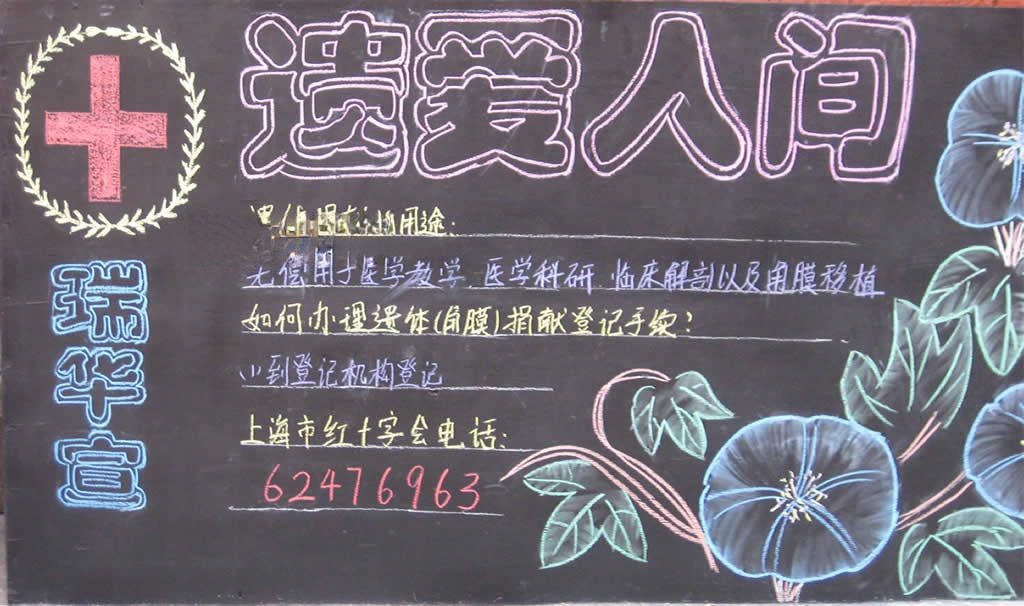 遗爱人间
用途:
无偿用于医学教学、医学科研、临床解剖以及角膜移植
如何办理遗体(角膜)捐献登记手续?
(1)到登记机构登记
上海市红十字会电话:
62476963
瑞华宣